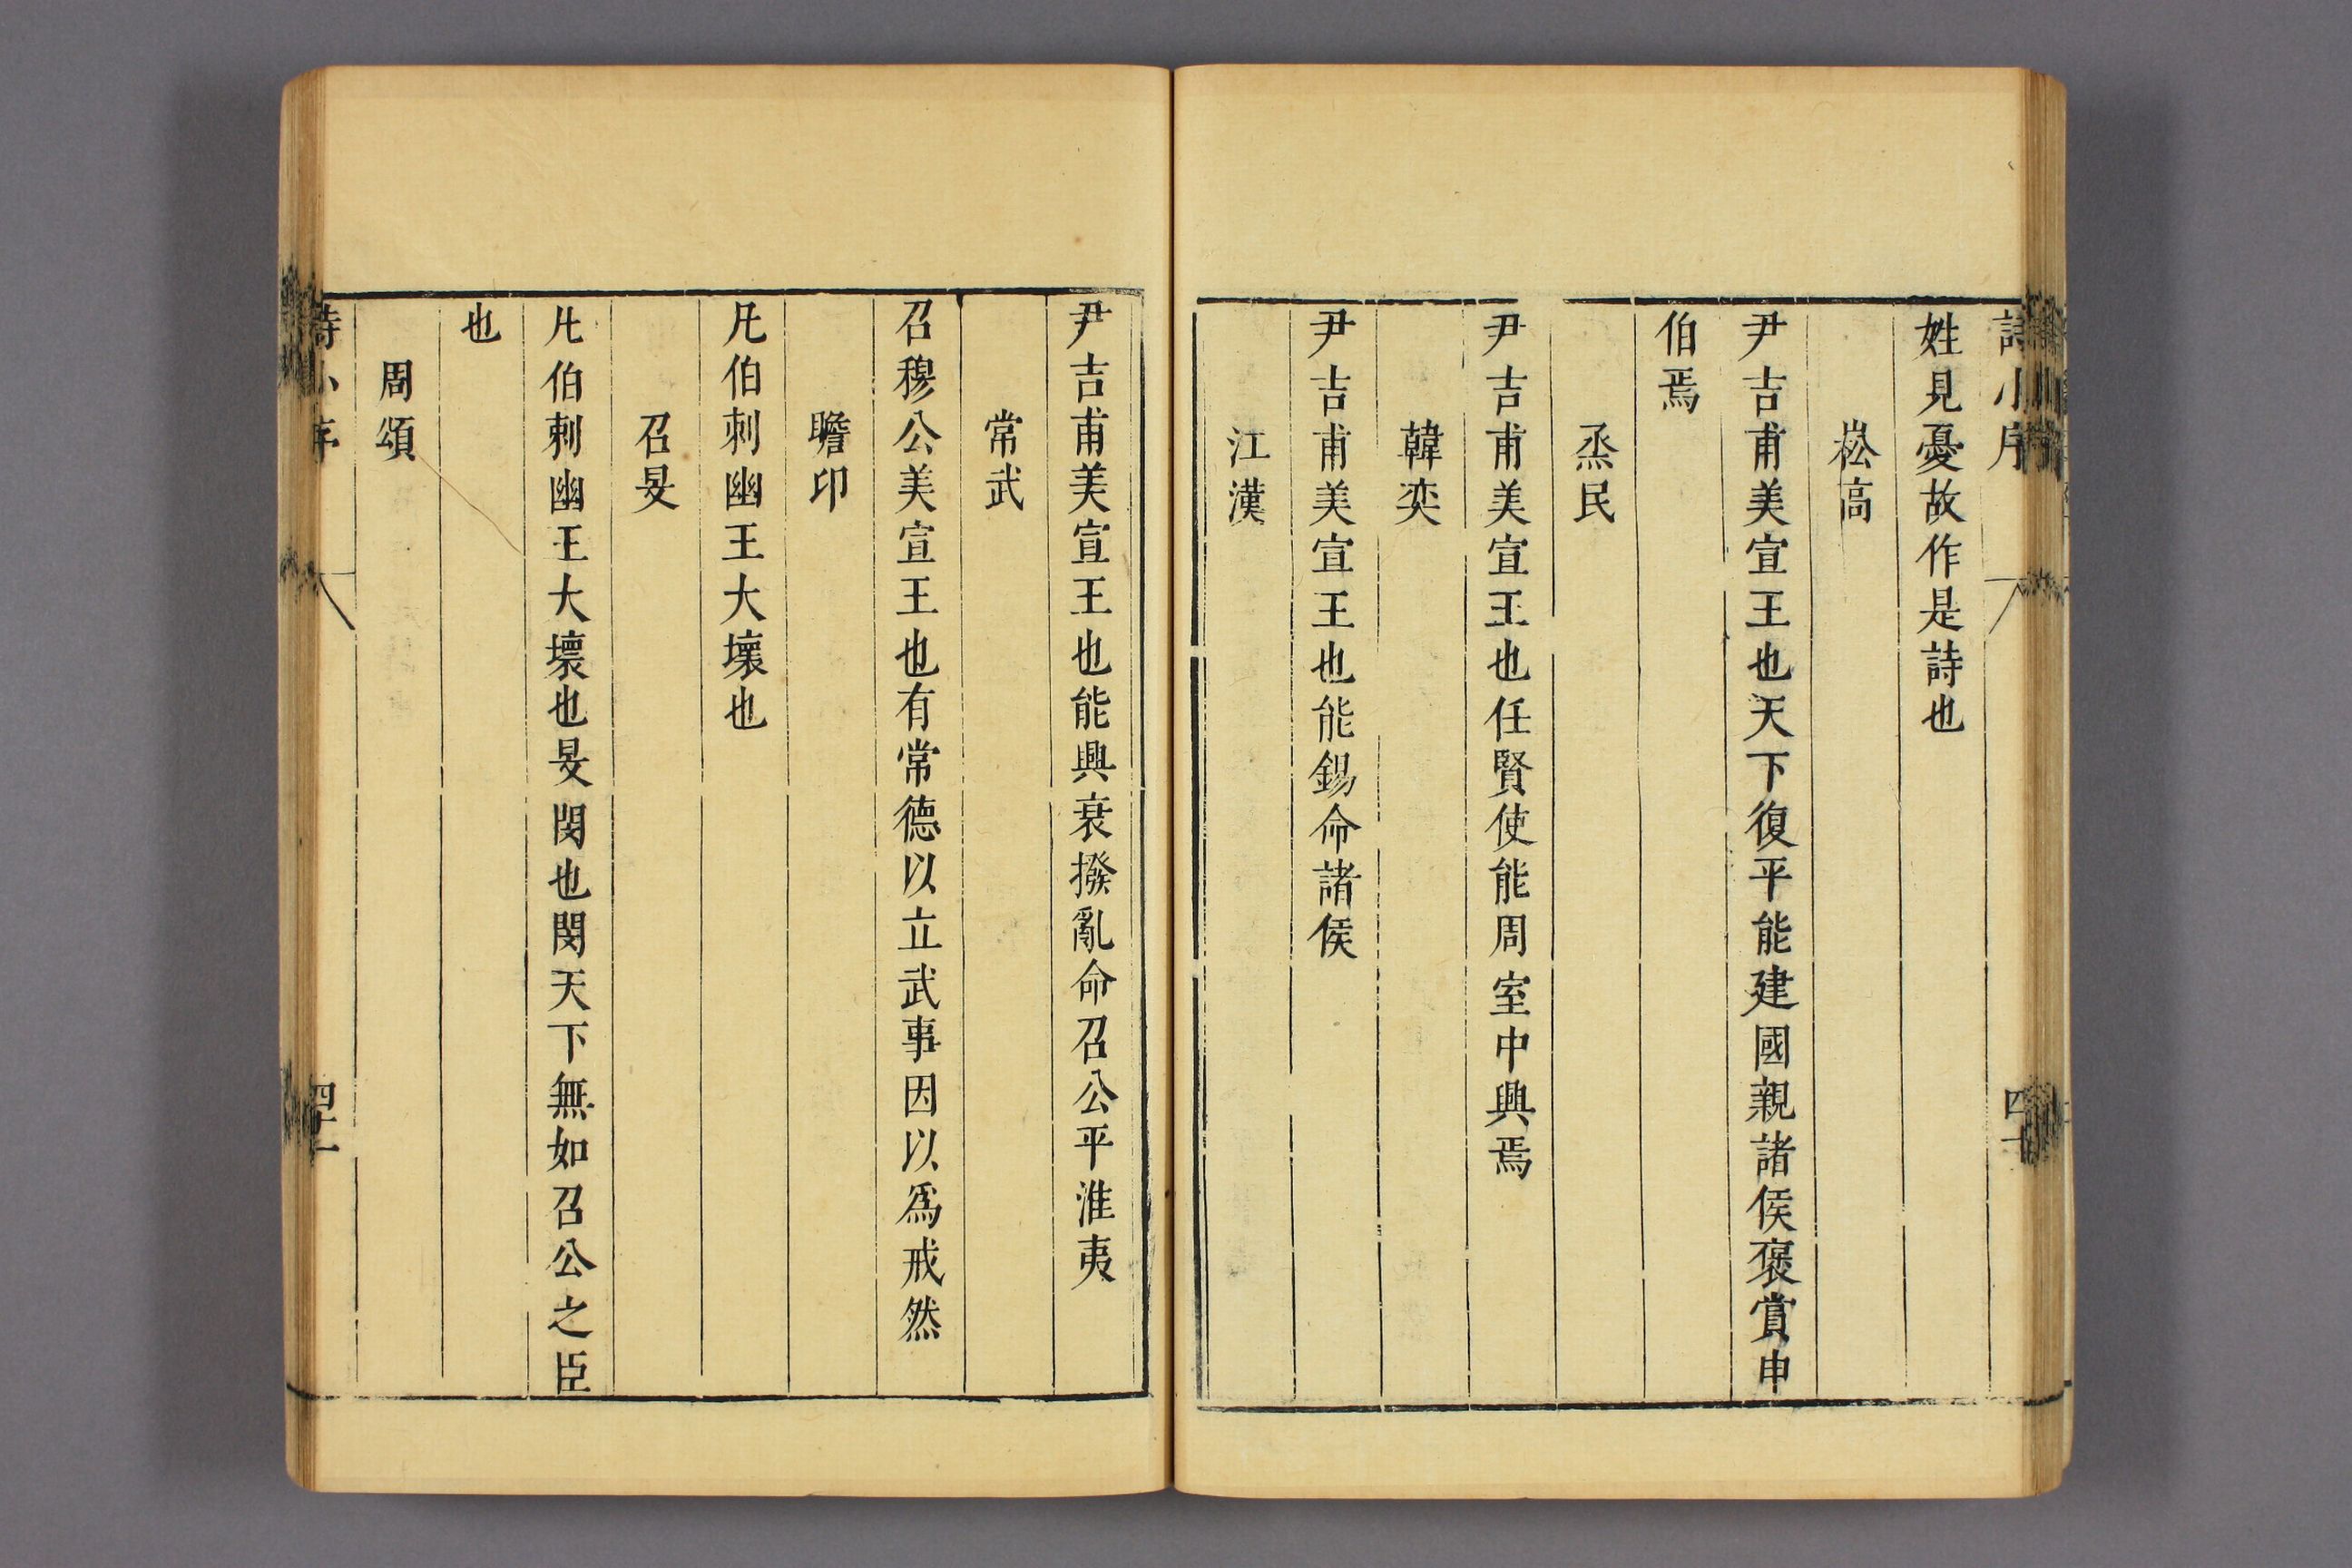 詩小序
四十
姓見憂故作是詩也
崧高
尹吉甫美宣王也天下復平能建國親諸侯褒賞申
伯焉
烝民
尹吉甫美宣王也任賢使能周室中興焉
韓奕
尹吉甫美宣王也能錫命諸侯
江漢
尹吉甫美宣王也能興衰撥亂命召公平淮夷
常武
召穆公美宣王也有常德以立武事因以爲戒然
瞻卬
凡伯刺幽王大壞也
召旻
凡伯刺幽王大壞也旻閔也閔天下無如召公之臣
也
周頌
詩小序
四十一